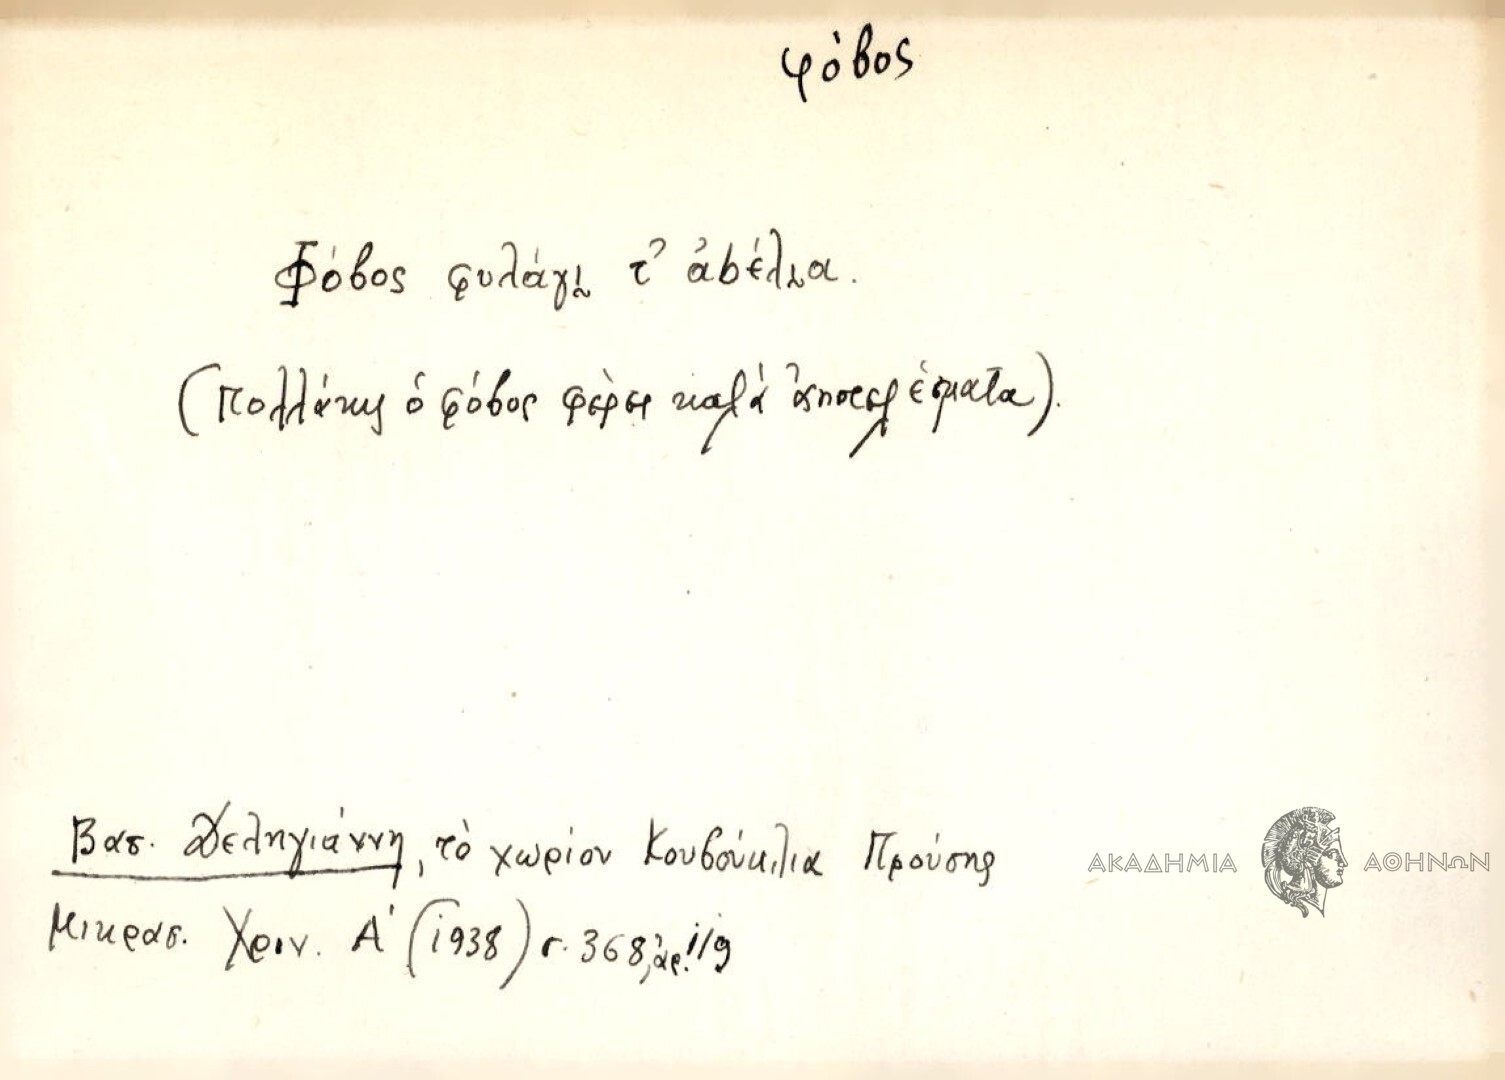 φόβος
Φόβος φυλάγι̮ τ' ἀbέλι̮α.
(Πολλάκις ὁ φόβος φέρει καλά ἀποτελέσματα).
Βασ. Δεληγιάννη, τὸ χωρίον Κουβούκλια Προύσης
Μικρασ. Χρον. Α' (1938) σ. 368, ἀρ. 119
ΑΚΑΔΗΜΙΑ ΑΘΗΝΩΝ